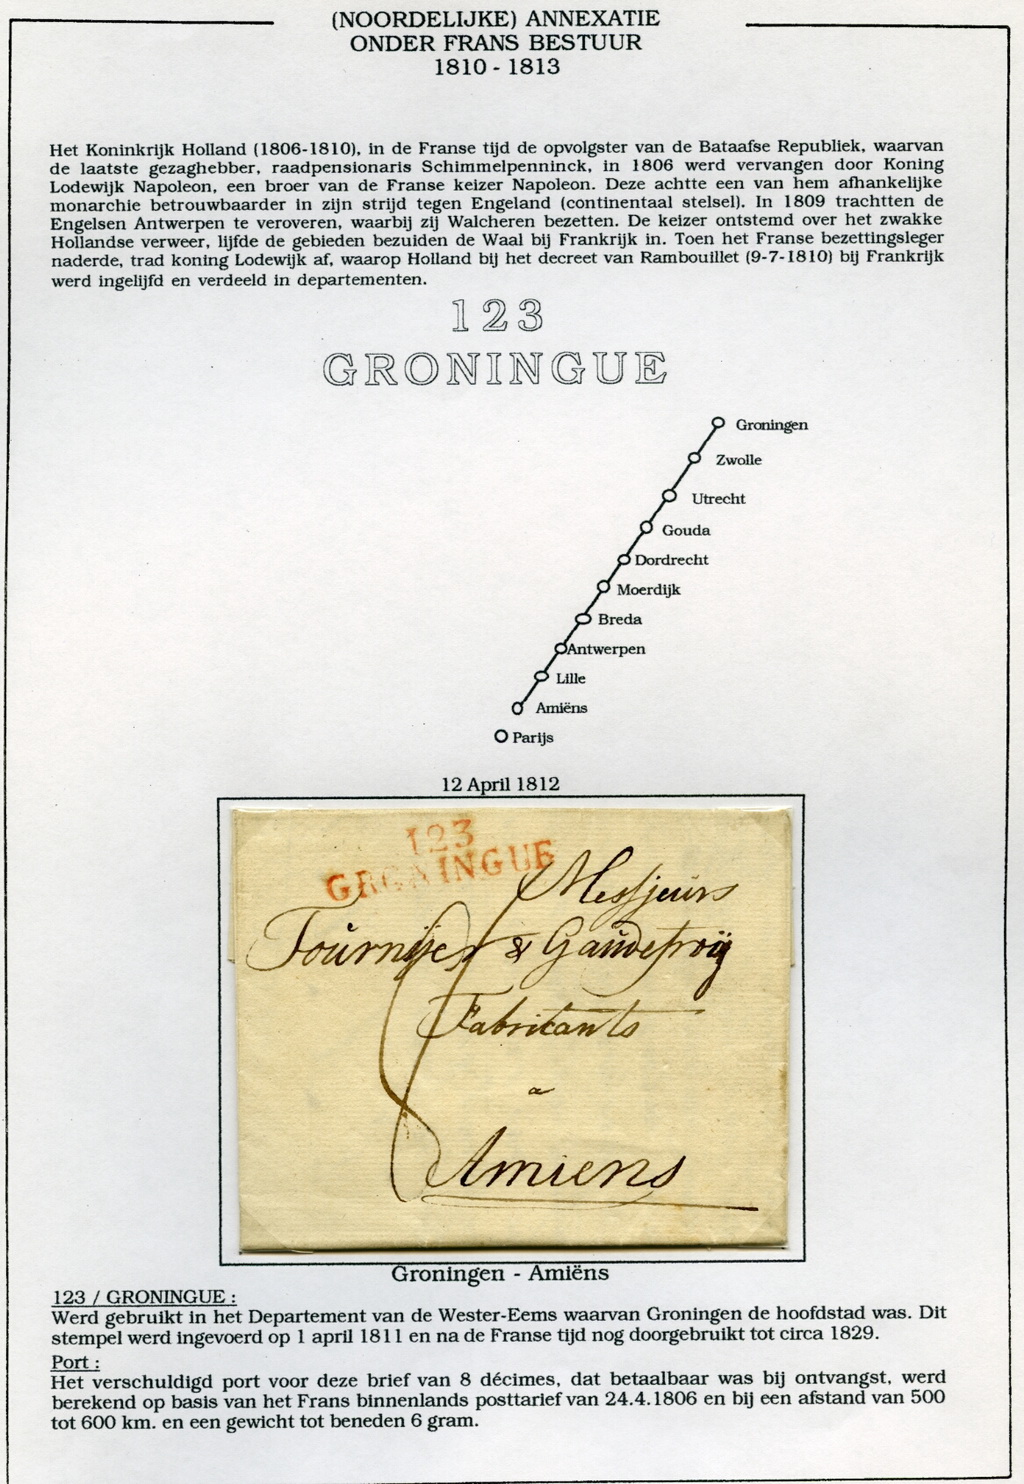 (NOORDELIJKE) ANNEXATIE
ONDER FRANS BESTUUR
1810 - 1813
Het Koninkrijk Holland (1806-1810), in de Franse tijd de opvolgster van de Bataafse Republiek, waarvan
de laatste gezaghebber, raadpensionaris Schimmelpenninck, in 1806 werd vervangen door Koning
Lodewijk Napoleon, een broer van de Franse keizer Napoleon. Deze achtte een van hem afhankelijke
monarchie betrouwbaarder in zijn strijd tegen Engeland (continentaal stelsel). In 1809 trachtten de
Engelsen Antwerpen te veroveren, waarbij zij Walcheren bezetten. De keizer ontstemd over het zwakke
Hollandse verweer, lijfde de gebieden bezuiden de Waal bij Frankrijk in. Toen het Franse bezettingsleger
naderde, trad koning Lodewijk af, waarop Holland bij het decreet van Rambouillet (9-7-1810) bij Frankrijk
werd ingelijfd en verdeeld in departementen.
123
GRONINGUE
Groningen
Zwolle
Utrecht
Gouda
Dordrecht
Moerdijk
Breda
Antwerpen
Lille
Amiëns
Parijs
12 April 1812
123
GRONINGUE
Messjeurs
Fournijer & Gaudefroij
Fabricants
a
Amiens
8
Groningen - Amiëns
123 / GRONINGUE :
Werd gebruikt in het Departement van de Wester-Eems waarvan Groningen de hoofdstad was. Dit
stempel werd ingevoerd op 1 april 1811 en na de Franse tijd nog doorgebruikt tot circa 1829.
Port :
Het verschuldigd port voor deze brief van 8 décimes, dat betaalbaar was bij ontvangst, werd
berekend op basis van het Frans binnenlands posttarief van 24.4.1806 en bij een afstand van 500
tot 600 km. en een gewicht tot beneden 6 gram.